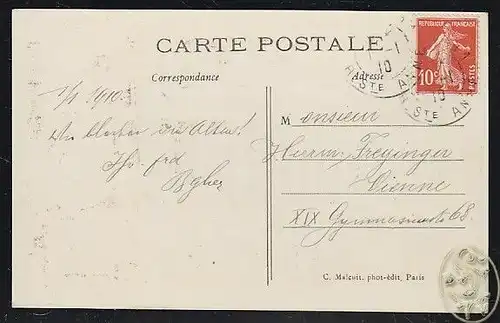 CARTE POSTALE
Correspondance
Adresse
REPUBLIQUE FRANÇAISE
10c
POSTES
1/1 1910.
Wir bleiben die Alten!
Monsieur
Herm. Freyinger
Vienne
XIX Gymnasiumstr 68
C. Malcuit, phot-édit, Paris